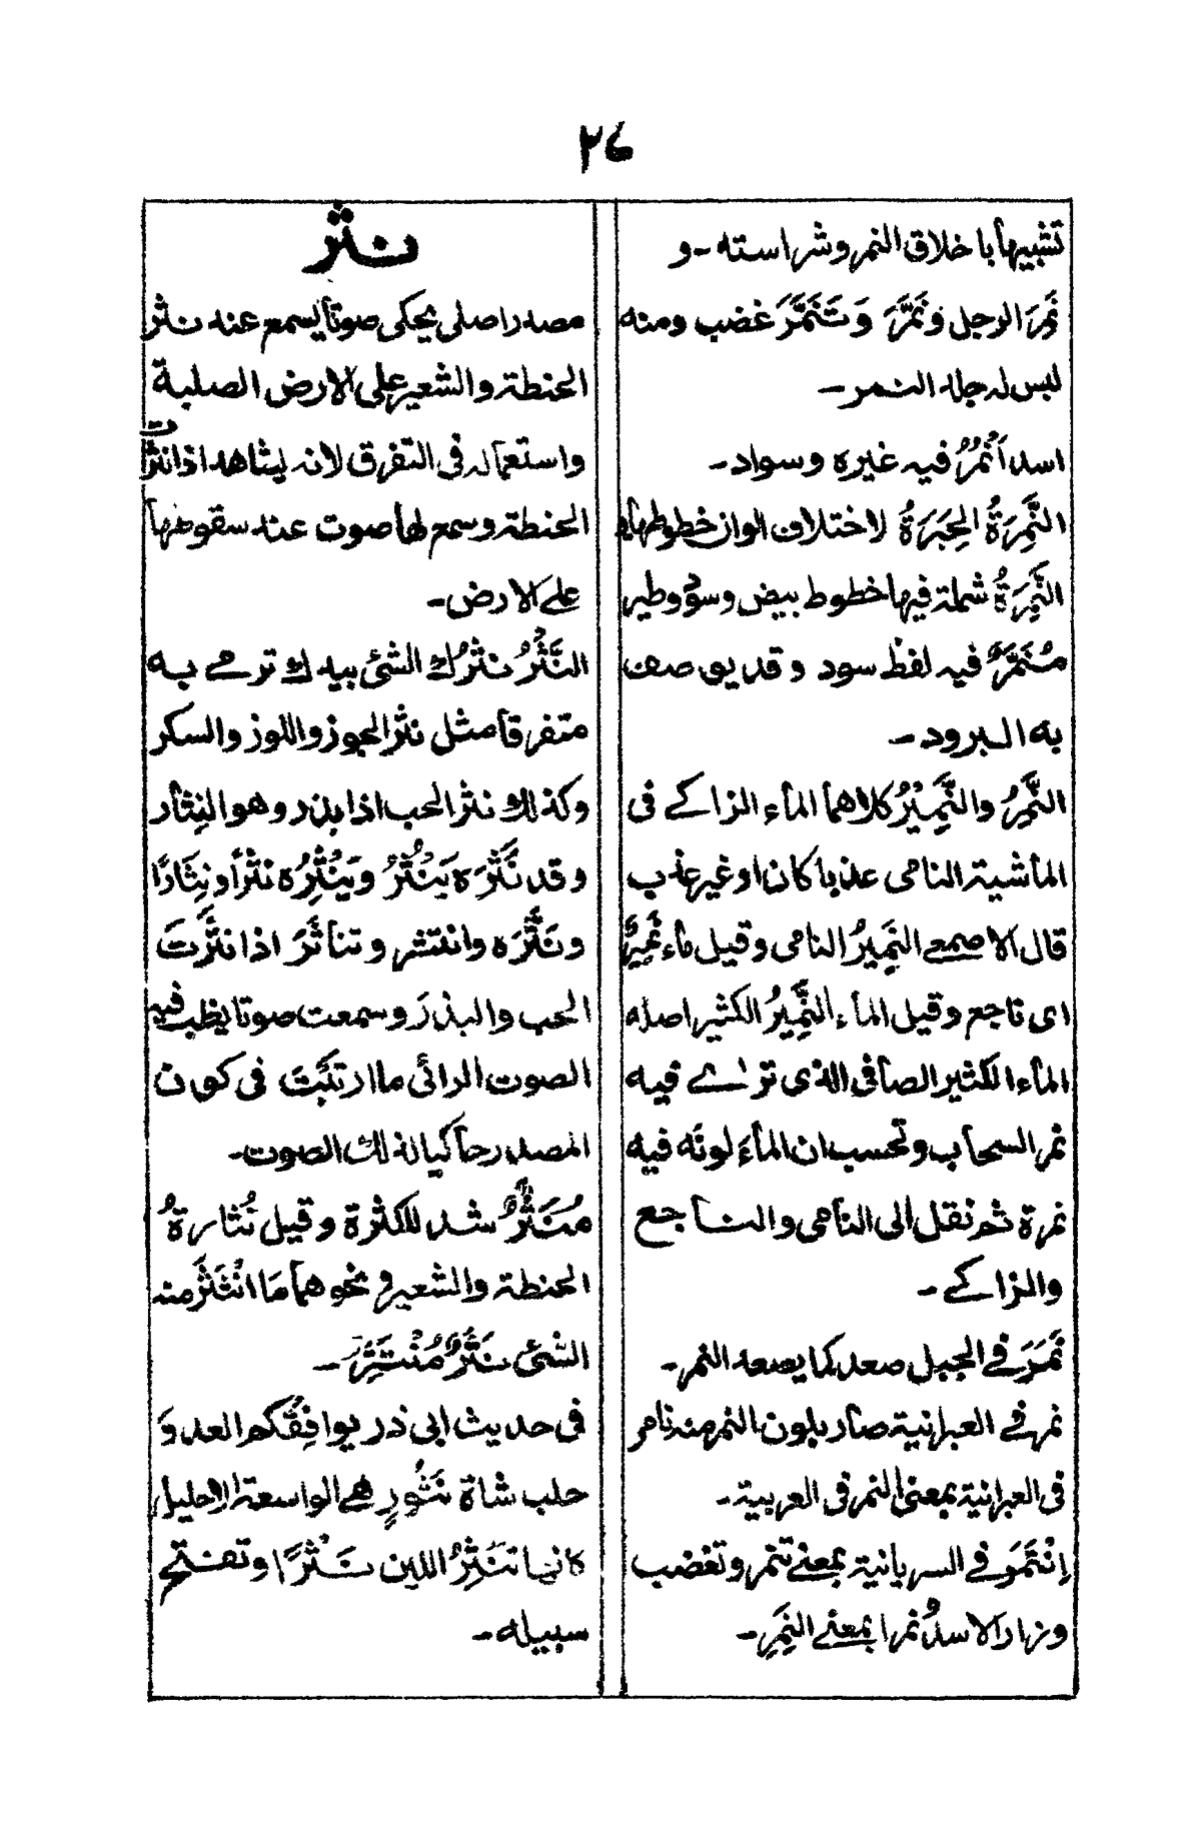 ٢٦
تشبيها باخلاق النمر وشراسته - و
نَمِرَ الرجل ونَمَّرَ وَتَنَمَّرَ غضب ومنه
لبس له جلد النمر -
اسد اَنْمَرُ فيه غبرة وسواد -
النَّمِرَةُ الحِبَرَةُ لاختلاف الوان خطوطها و
النَّمِرَةُ شملة فيها خطوط بيض وسود وطير
مُنَمَّرٌ فيه نقط سود وقد يوصف
به البرود -
النَّمِرُ والنَّمِيْرُ كلاهما الماء الزاكے فى
الماشية النامى عذبا كان او غير عذب
قال الاصمعے النَمِيرُ النامى وقيل ماء نَمِيرٌ
اى ناجع وقيل الماء النَّمِيرُ الكثير اصله
الماء الكثير الصافى الذى ترٰى فيه
نمر السحاب وتحسب ان الماءَ لونَه فيه
نمرة ثم نقل الى النامى والناجع
والزاكے -
نَمَرَ فے الجبل صعد كما يصعد النمر -
نمر فے العبرانية صار بلون النمر منه نامر
فى العبرانية بمعنى النمر فى العربية -
اِنْتَمَرَ فے السريانية بمعنے تنمر وتغضب
وزار الاسدُ نمرا بمعنے النَمِرِ -
نثر
مصدر اصلى يحكى صوتا يسمع عند نثر
الحنطة والشعير على الارض الصلبة
واستعماله فى التفرق لانه يشاهد اذا نثرت
الحنطة وسمع لها صوت عند سقوطها
علے الارض -
النَّثْرُ نثرُك الشئ بيدك ترمے به
متفرقا مثل نثر الجوز واللوز والسكر
وكذلك نثر الحب اذا بذر وهو النِثار
وقد نَثَرَه يَنْثُرُ ويَنْثِرُه نثرا ونِثَارًا
ونَثَّرَه وانتثر وتناثَرَ اذا نثَرَتَ
الحب والبذرَ وسمعت صوتا يطلب فيه
الصوت الرائى ما ارتكبتَ فى كون
المصدر حاكيا لذلك الصوت -
مُنَثَّرٌ شدد للكثرة وقيل نُثارةُ
الحنطة والشعير ونحوهما مَا انْتَثَرَ منه
الشئ نَثَرٌ مُنْتَثِرٌ -
فى حديث ابى ذر يوافِقُكم العدوَ
حلب شاة نَثُورٍ هے الواسعة الاحليل
كانها تَنْثِرُ اللبن نَثْرًا وتفتح
سبيله -